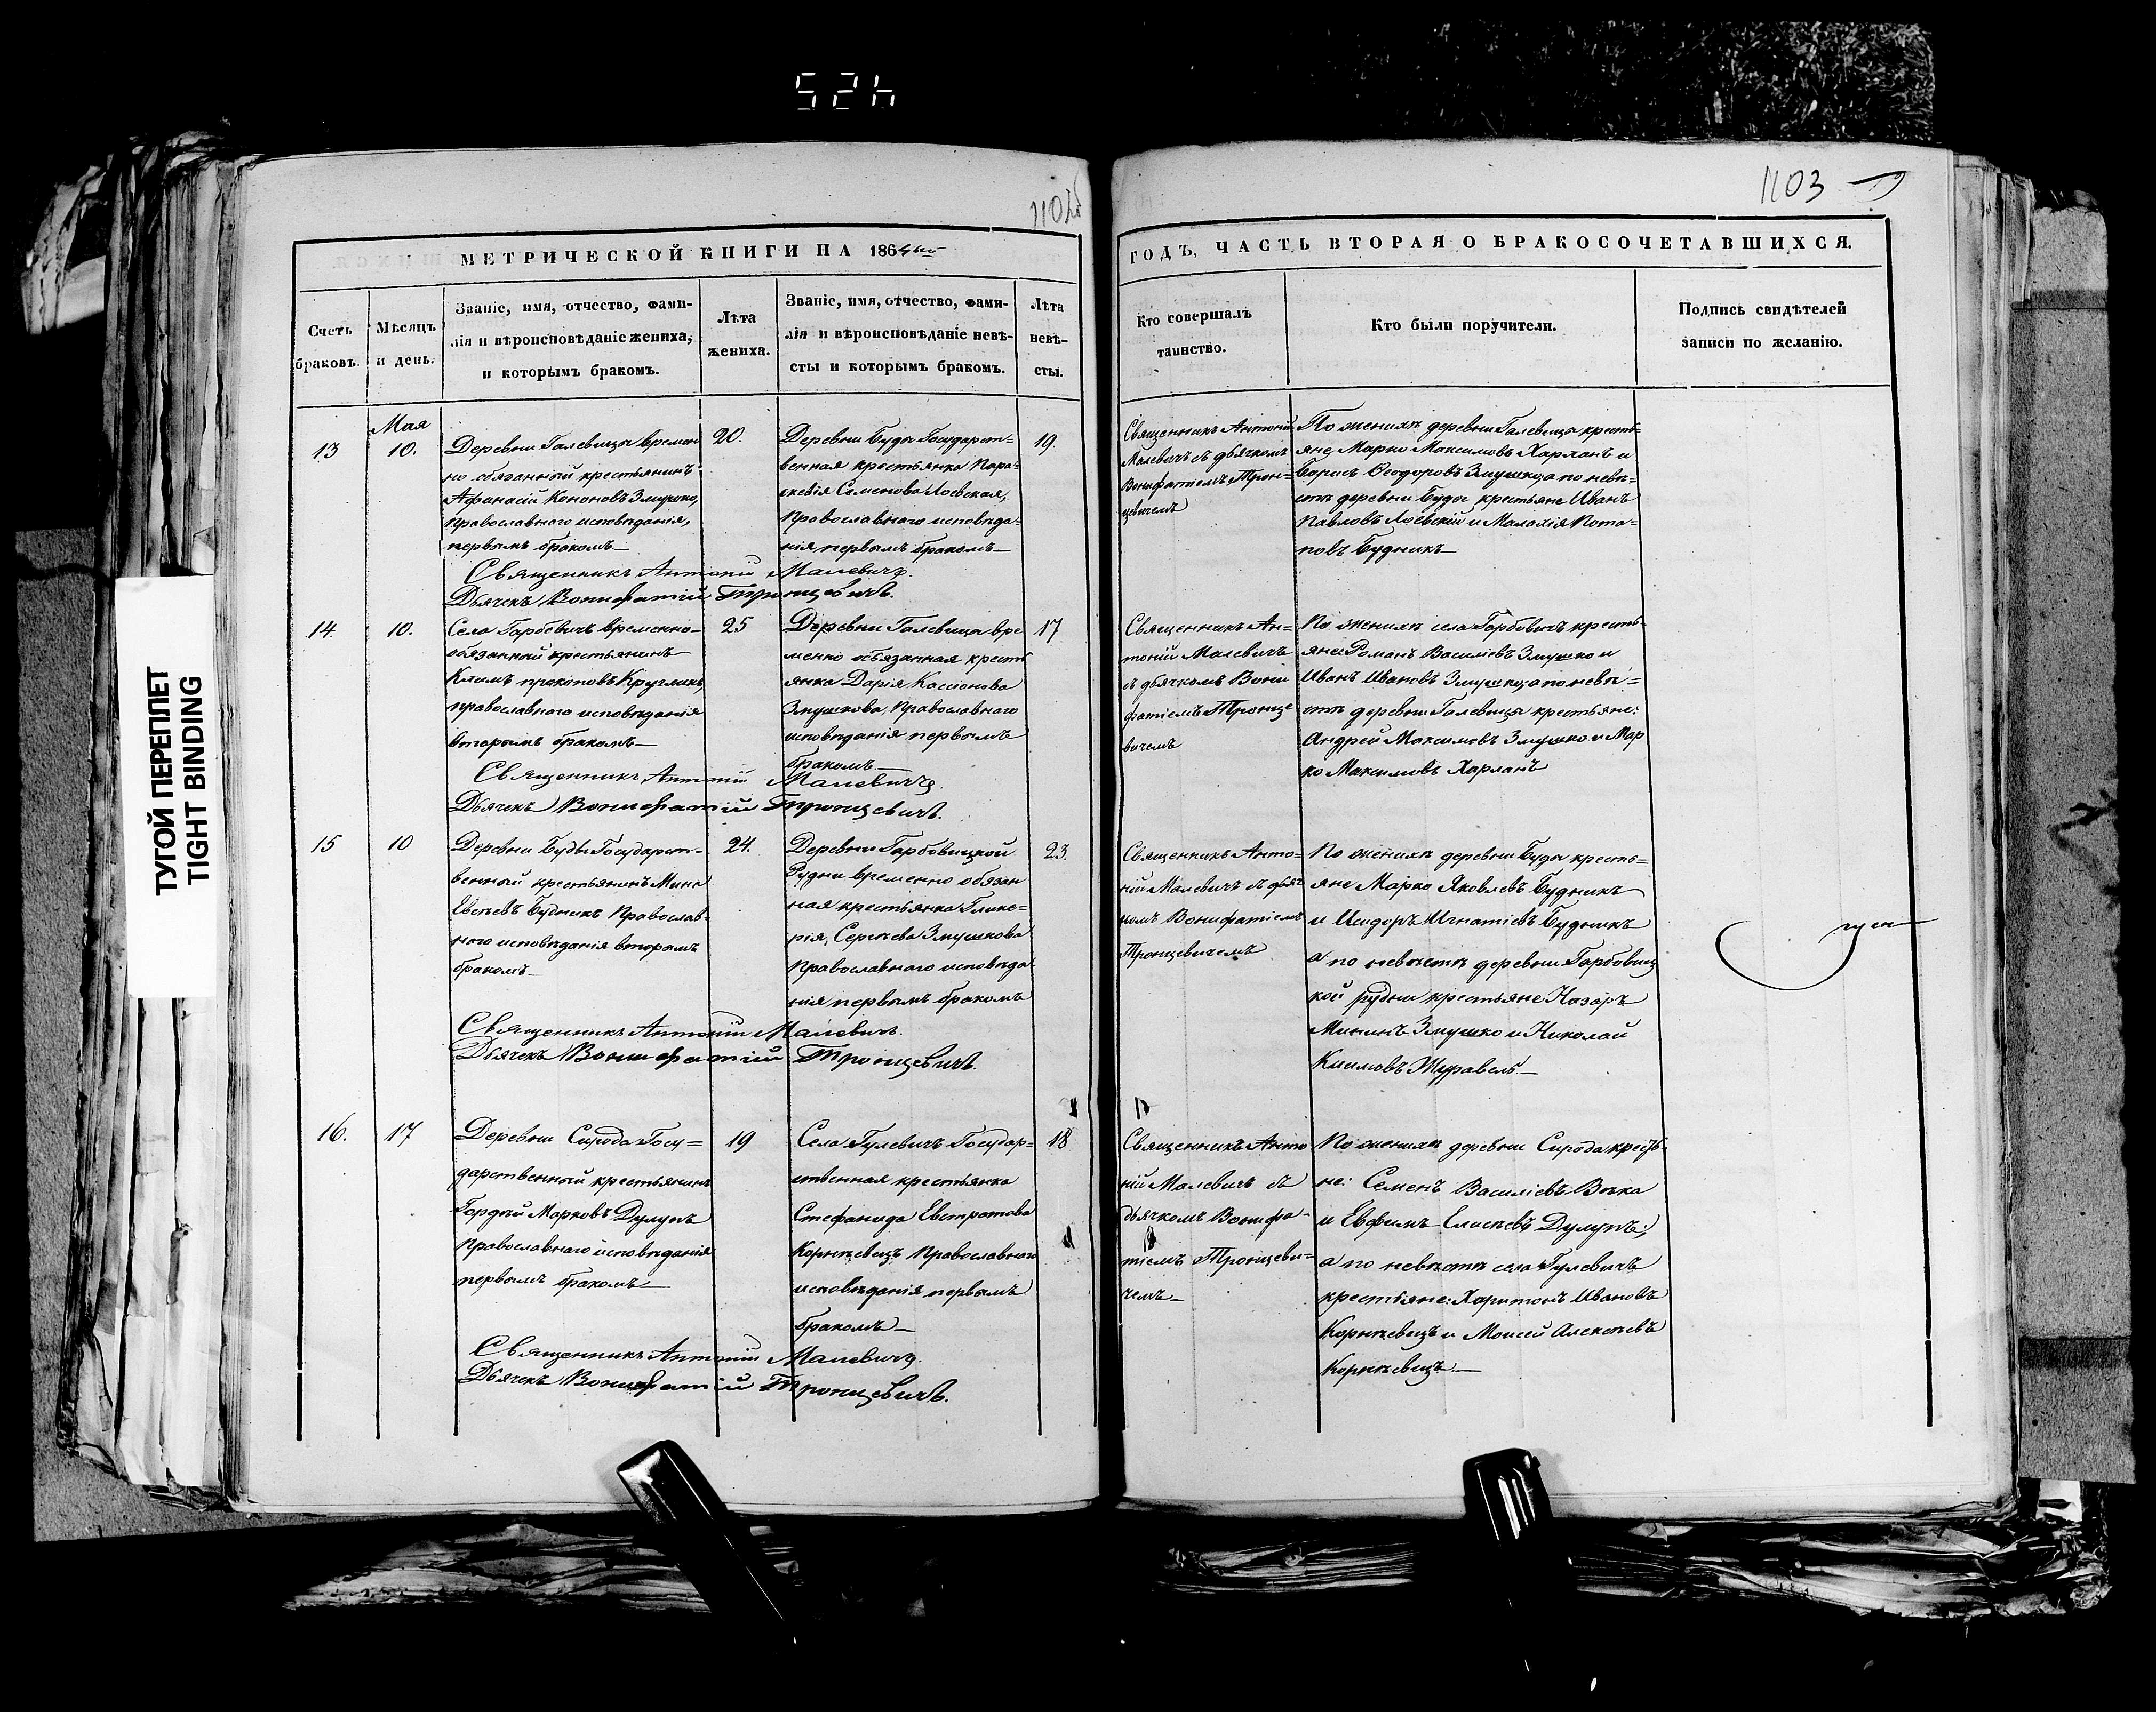 524
1102об
1103
МЕТРИЧЕСКОЙ КНИГИ НА 1864ый
ГОДЪ, ЧАСТЬ ВТОРАЯ О БРАКОСОЧЕТАВШИХСЯ.
Счетъ
браковъ.
Мѣсяцъ
и день.
Званіе, имя, отчество, фами-
лія и вѣроисповѣданіе жениха,
и которымъ бракомъ.
Лѣта
жениха.
Званіе, имя, отчество, фами-
лія и вѣроисповѣданіе невѣ-
сты и которымъ бракомъ.
Лѣта
невѣ-
сты.
Кто совершалъ
таинство.
Кто были поручители.
Подпись свидѣтелей
записи по желанію.
13
Мая
10.
Деревни Галевицы времен
но обязанный крестьянинъ
Афанасій Кононовъ Змушко,
православнаго исповѣданія,
первымъ бракомъ—
20.
Деревни Буды Государст=
венная крестьянка Пара=
скевія Семенова Лоевская,
православнаго исповѣда-
нія, первымъ бракомъ—
19.
Священникъ Антоній
Малевичъ съ дьячкомъ
Вонифатіемъ Трон=
цевичемъ
По женихѣ деревни Галевицы кресть=
яне Марко Максимовъ Харланъ и
Борисъ Ѳеодоровъ Змушко, а по невѣ=
стѣ деревни Буды крестьяне Иванъ
Павловъ Лоевскій и Малахія Пота=
повъ Будникъ—
Священникъ Антоній Малевичъ.
Дьячекъ Вонифатій Тронцевичъ.
14.
10.
Села Гарбовичъ временно-
обязанный крестьянинъ
Климъ Прокоповъ Кругликъ,
православнаго исповѣданія
вторымъ бракомъ—
25
Деревни Галевицы вре
менно обязанная кресть
янка Дарія Касіонова
Змушкова, Православнаго
исповѣданія первымъ
бракомъ—
17
Священникъ Ан=
тоній Малевичъ
съ дьячкомъ Вони
фатіемъ Тронце
вичемъ
По женихѣ села Гарбовичъ кресть-
яне: Романъ Василіевъ Змушко и
Иванъ Ивановъ Змушко; а по невѣ=
стѣ деревни Галевицы крестьяне:
Андрей Максимовъ Змушко и Мар
ко Максимовъ Харланъ
Священникъ Антоній Малевичъ.
Дьячекъ Вонифатій Тронцевичъ.
15
10
Деревни Буды Государст-
венный крестьянинъ Мина
Евсѣевъ Будникъ Православ-
наго исповѣданія вторымъ
бракомъ—
24.
Деревни Гарбовицкой
Рудни временно обязан
ная крестьянка Глике=
рія, Сергѣева Змушкова
Православнаго исповѣда-
нія первымъ бракомъ
23.
Священникъ Анто=
ній Малевичъ съ дьяч
комъ Вонифатіемъ
Тронцевичемъ
По женихѣ деревни Буды кресть=
яне Марко Яковлевъ Будникъ
и Исидоръ Игнатіевъ Будникъ
а по невѣстѣ деревни Гарбовиц
кой рудни крестьяне Назаръ
Мининъ Змушко и Николай
Климовъ Журавель.—
Священникъ Антоній Малевичъ.
Дьячекъ Вонифатій Тронцевичъ.
16.
17
Деревни Сирода Госу=
дарственный крестьянинъ
Гордѣй Марковъ Дулупъ
Православнаго исповѣданія
первымъ бракомъ—
19
Села Гулевичъ Государ=
ственная крестьянка
Стефанида Евстратова
Корнѣевецъ Православнаго
исповѣданія первымъ
бракомъ—
18
Священникъ Анто
ній Малевичъ съ
дьячкомъ Вонифа-
тіемъ Тронцеви=
чемъ—
По женихѣ деревни Сирода крестья-
не: Семенъ Василіевъ Вѣка
и Евфимъ Елисѣевъ Дулупъ;
а по невѣстѣ села Гулевичъ
крестьяне: Харитонъ Ивановъ
Корнѣевецъ и Моисей Алексѣевъ
Корнѣевецъ—
Священникъ Антоній Малевичъ.
Дьячекъ Вонифатій Тронцевичъ.
ТУГОЙ ПЕРЕПЛЕТ
TIGHT BINDING